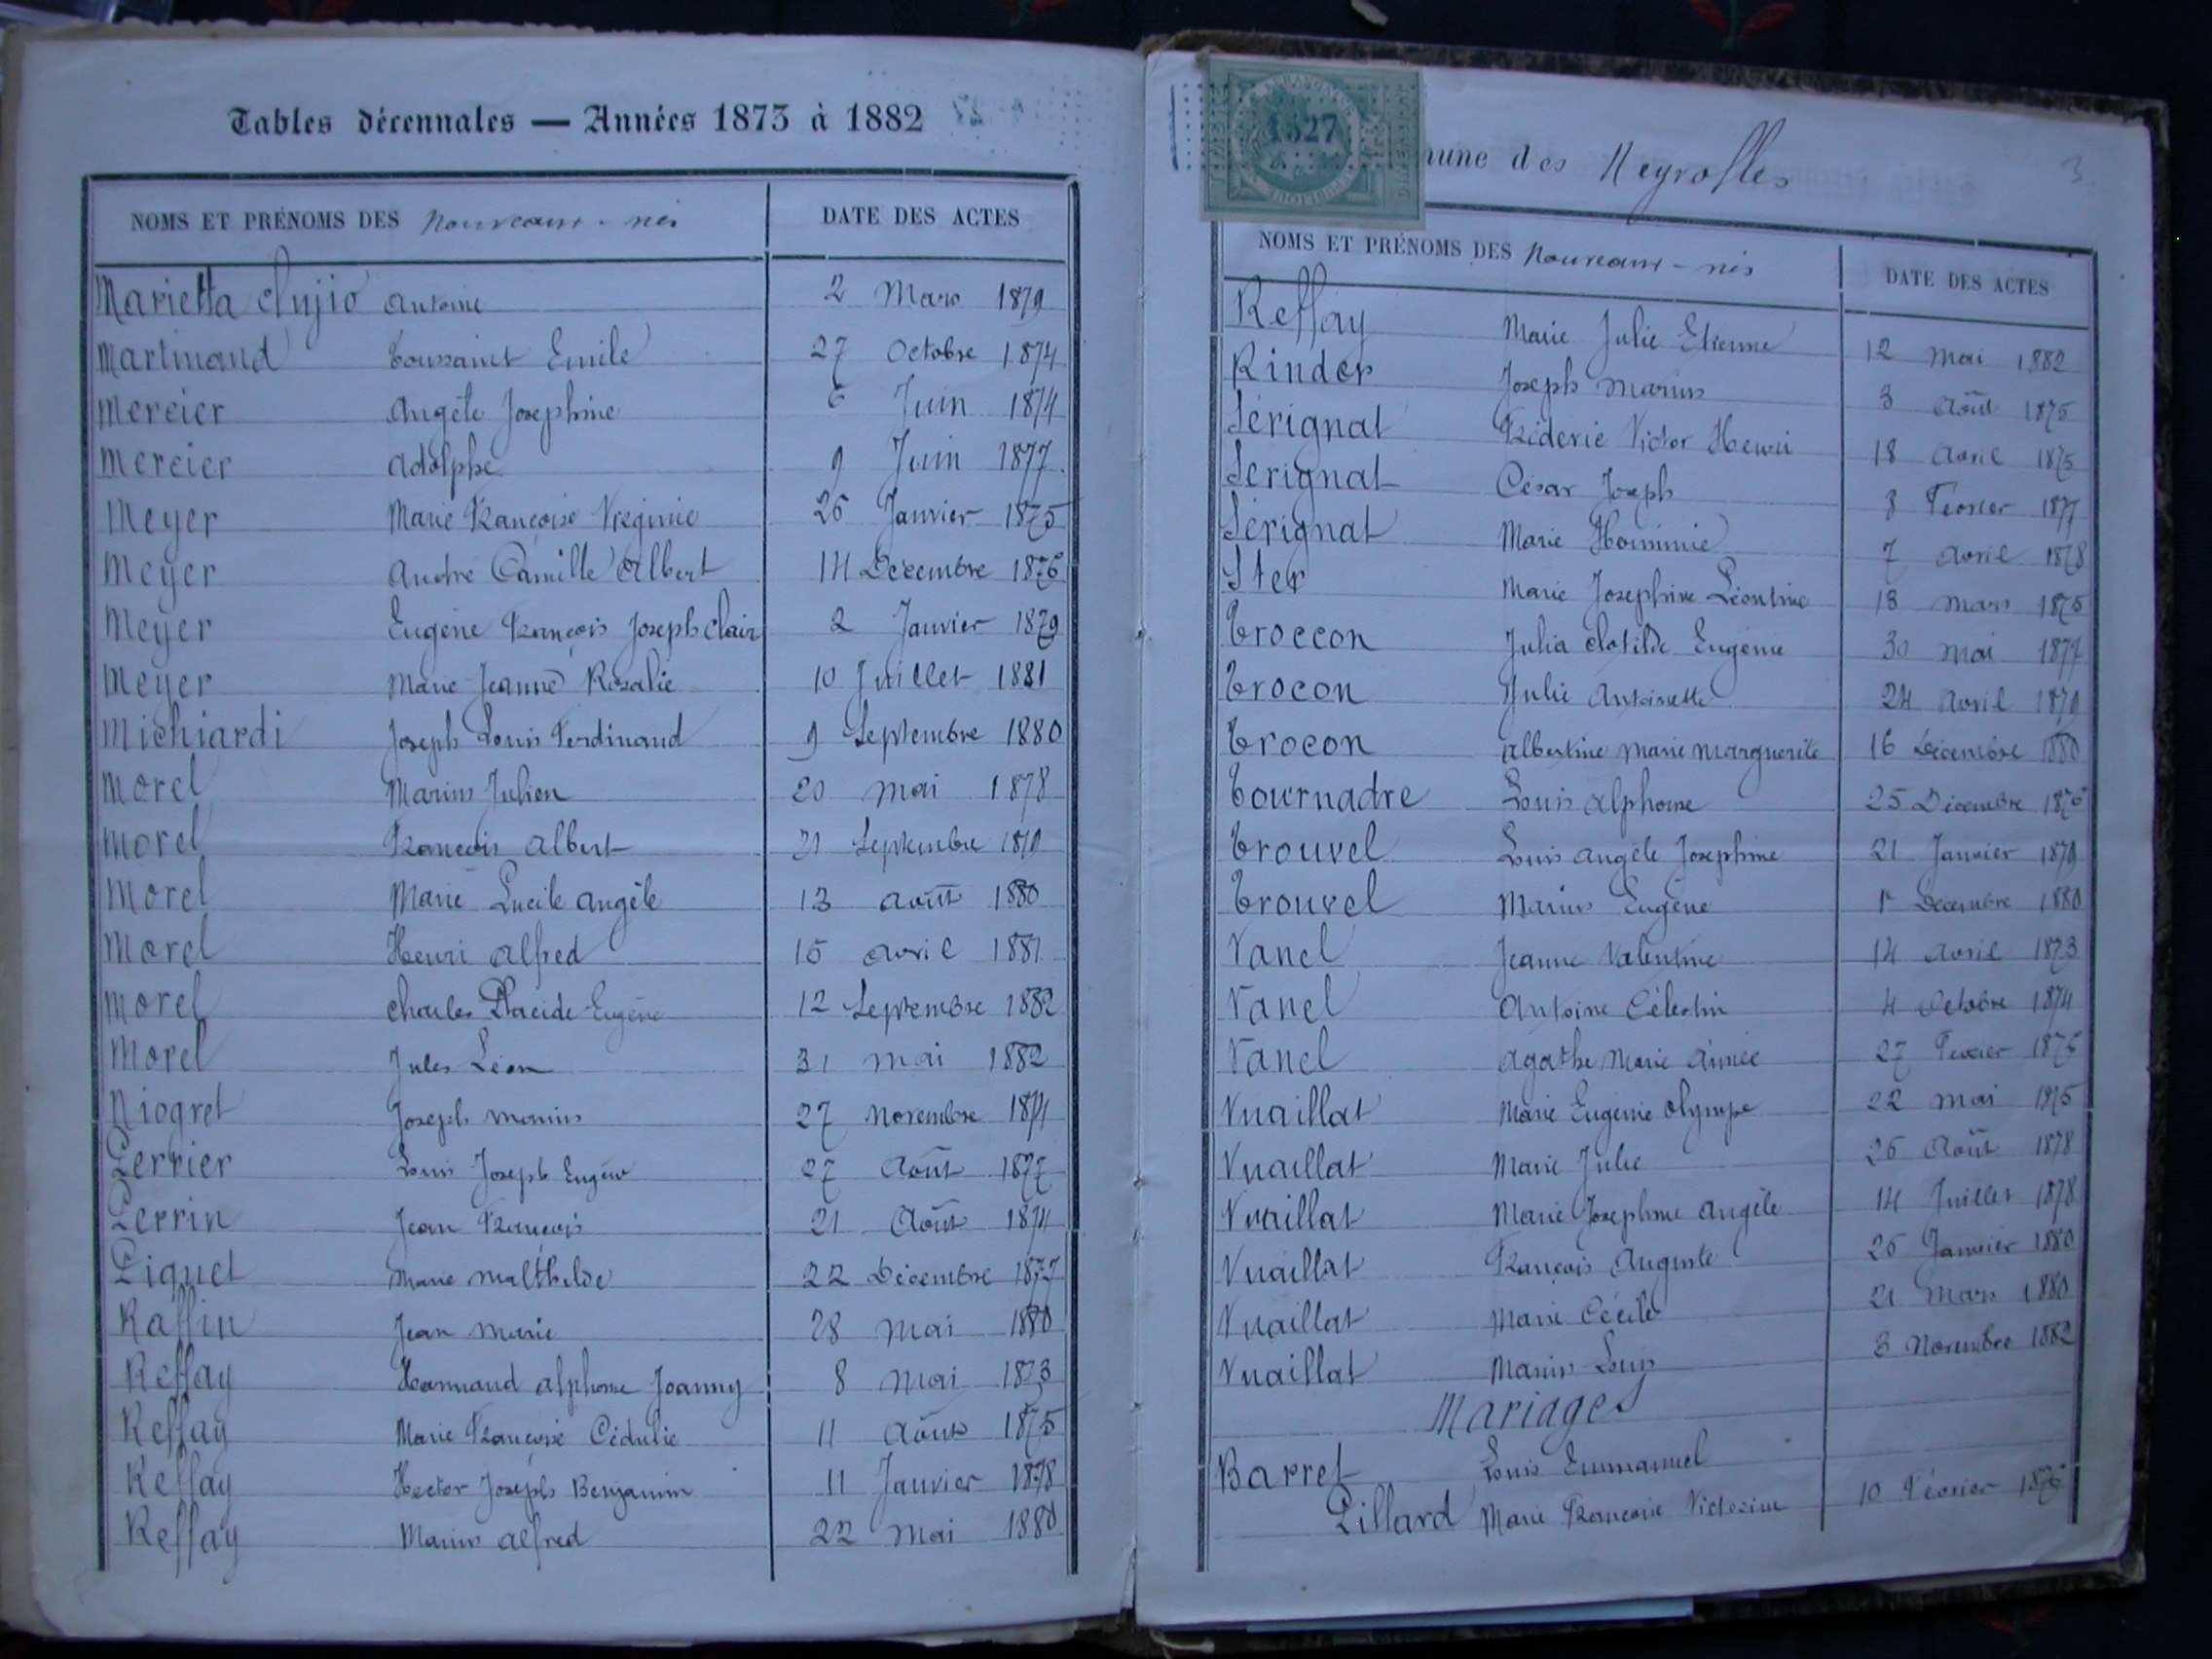 Tables décennales — Années 1873 à 1882
NOMS ET PRÉNOMS DES Nouveaux-nés DATE DES ACTES
Marietta Antoine 2 Mars 1879
Martinand Toussaint Emile 27 Octobre 1874
Mercier Angèle Josephine 6 Juin 1874
Mercier Adolphe 9 Juin 1877
Meyer Marie Françoise Virginie 26 Janvier 1875
Meyer André Camille Albert 14 Décembre 1876
Meyer Eugène François Joseph Clair 2 Janvier 1879
Meyer Marie Jeanne Rosalie 10 Juillet 1881
Michiardi Joseph Louis Ferdinand 9 Septembre 1880
Morel Marius Julien 20 Mai 1878
Morel François Albert 21 Septembre 1879
Morel Marie Lucile Angèle 13 Août 1880
Morel Henri Alfred 15 Avril 1881
Morel Charles Placide Eugène 12 Septembre 1882
Morel Jules Léon 31 Mai 1882
Niogret Joseph Marius 27 Novembre 1874
Perrier Louis Joseph Eugène 27 Août 1877
Perrin Jean François 21 Août 1874
Piquet Marie Malthilde 22 Décembre 1877
Raffin Jean Marie 28 Mai 1880
Reffay Alphonse Joanny 8 Mai 1873
Reffay Marie Françoise Cédulie 11 Août 1875
Reffay Hector Joseph Benjamin 11 Janvier 1878
Reffay Marius Alfred 22 Mai 1880
1527
mune des Neyrolles
3
NOMS ET PRÉNOMS DES Nouveaux-nés DATE DES ACTES
Reffay Marie Julie Etienne 12 Mai 1882
Rinder Joseph Marius 3 Août 1875
Sérignat Fréderic Victor Henri 18 Avril 1875
Sérignat César Joseph 8 Février 1877
Sérignat Marie 7 Avril 1878
Ster Marie Josephine Léontine 18 Mars 1876
Troccon Julia Clotilde Eugénie 30 Mai 1877
Trocon Julie Antoinette 24 Avril 1879
Trocon Albertine Marie Marguerite 16 Décembre 1880
Tournadre Louis Alphonse 25 Décembre 1876
Trouvel Louis Angèle Josephine 21 Janvier 1879
Trouvel Marius Eugène 1er Décembre 1880
Vanel Jeanne Valentine 14 Avril 1873
Vanel Antoine Célestin 4 Octobre 1874
Vanel Agathe Marie Aimée 27 Février 1876
Vuaillat Marie Eugénie Olympe 22 Mai 1875
Vuaillat Marie Julie 26 Août 1878
Vuaillat Marie Josephine Angèle 14 Juillet 1878
Vuaillat François Auguste 26 Janvier 1880
Vuaillat Marie Cécile 21 Mars 1880
Vuaillat Marius Louis 3 Novembre 1882
Mariages
Barret Louis Emmanuel
Pillard Marie Françoise Victorine 10 Février 1876